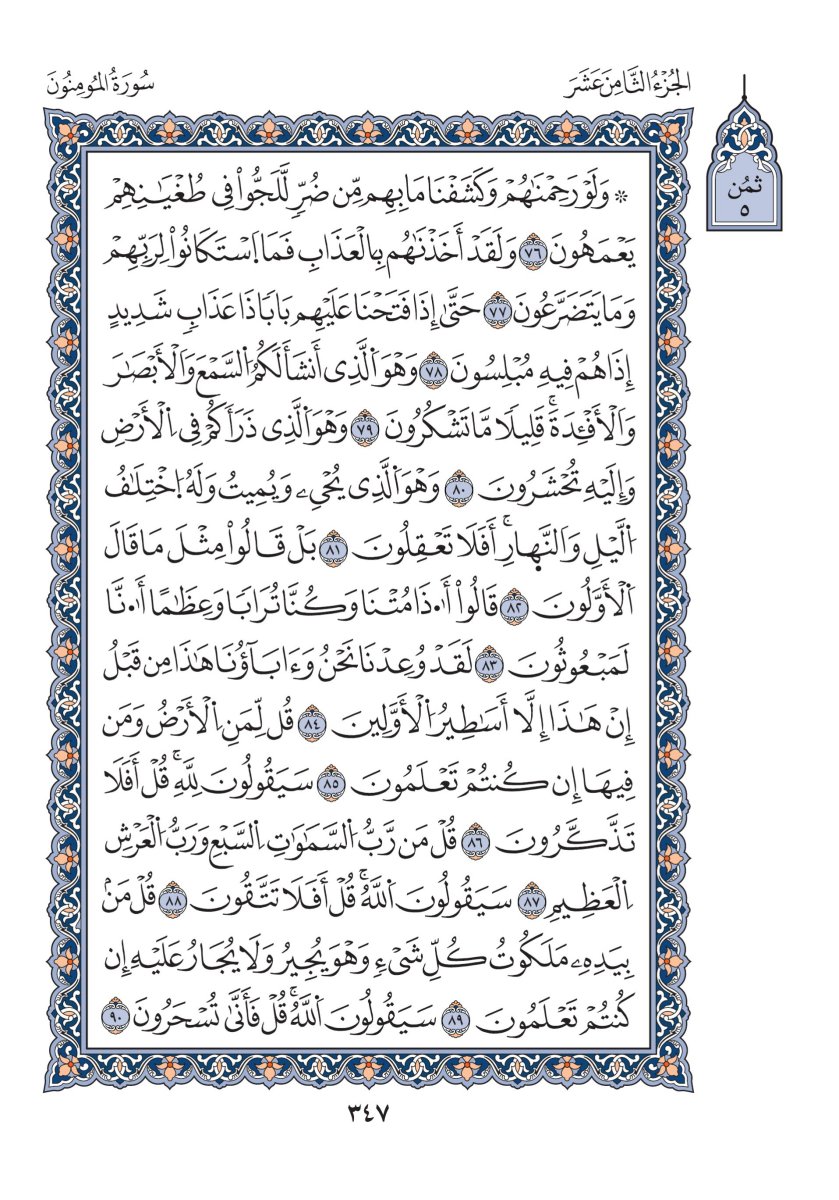 الجُزْءُ الثَّامِنَ عَشَرَ
سُورَةُ المُومِنُونَ
ثمُن
٥
۞ وَلَوْ رَحِمْنَٰهُمْ وَكَشَفْنَا مَا بِهِم مِّن ضُرٍّ لَّلَجُّواْ فِى طُغْيَٰنِهِمْ
يَعْمَهُونَ ٧٦ وَلَقَدْ أَخَذْنَٰهُم بِالْعَذَابِ فَمَا اَسْتَكَانُواْ لِرَبِّهِمْ
وَمَا يَتَضَرَّعُونَ ٧٧ حَتَّىٰ إِذَا فَتَحْنَا عَلَيْهِم بَابٗا ذَا عَذَابٖ شَدِيدٍ
إِذَا هُمْ فِيهِ مُبْلِسُونَ ٧٨ وَهْوَ اَلَّذِى أَنشَأَ لَكُمُ اُلسَّمْعَ وَالْأَبْصَٰرَ
وَالْأَفْـِٔدَةَۚ قَلِيلٗا مَّا تَشْكُرُونَ ٧٩ وَهْوَ اَلَّذِى ذَرَأَكُمْ فِى اِلْأَرْضِ
وَإِلَيْهِ تُحْشَرُونَ ٨٠ وَهْوَ اَلَّذِى يُحْيِۦ وَيُمِيتُ وَلَهُ اُخْتِلَٰفُ
اُلَّيْلِ وَالنَّهِارِۚ أَفَلَا تَعْقِلُونَ ٨١ بَلْ قَالُواْ مِثْلَ مَا قَالَ
اَلْأَوَّلُونَ ٨٢ قَالُواْ أَا۟ذَا مُتْنَا وَكُنَّا تُرَابٗا وَعِظَٰمًا أَا۟نَّا
لَمَبْعُوثُونَ ٨٣ لَقَدْ وُعِدْنَا نَحْنُ وَءَابَآؤُنَا هَٰذَا مِن قَبْلُ
إِنْ هَٰذَا إِلَّا أَسَٰطِيرُ اُلْأَوَّلِينَ ٨٤ قُل لِّمَنِ اِلْأَرْضُ وَمَن
فِيهَا إِن كُنتُمْ تَعْلَمُونَ ٨٥ سَيَقُولُونَ لِلَّهِۚ قُلْ أَفَلَا
تَذَّكَّرُونَ ٨٦ قُلْ مَن رَّبُّ اُلسَّمَٰوَٰتِ اِلسَّبْعِ وَرَبُّ اُلْعَرْشِ
اِلْعَظِيمِ ٨٧ سَيَقُولُونَ اَللَّهُۚ قُلْ أَفَلَا تَتَّقُونَ ٨٨ قُلْ مَنْ
بِيَدِهِۦ مَلَكُوتُ كُلِّ شَىْءٖ وَهْوَ يُجِيرُ وَلَا يُجَارُ عَلَيْهِ إِن
كُنتُمْ تَعْلَمُونَ ٨٩ سَيَقُولُونَ اَللَّهُۚ قُلْ فَأَنَّىٰ تُسْحَرُونَ ٩٠
٣٤٧